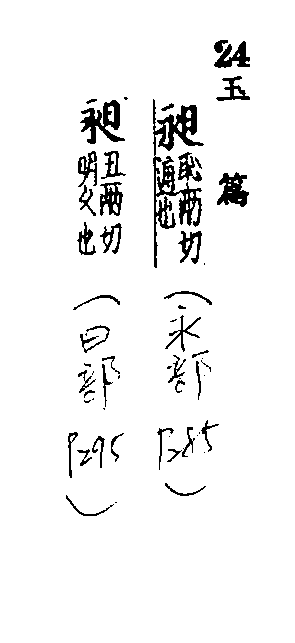 24玉篇
昶恥兩切通也(永部P285)
昶丑兩切明久也(日部P295)